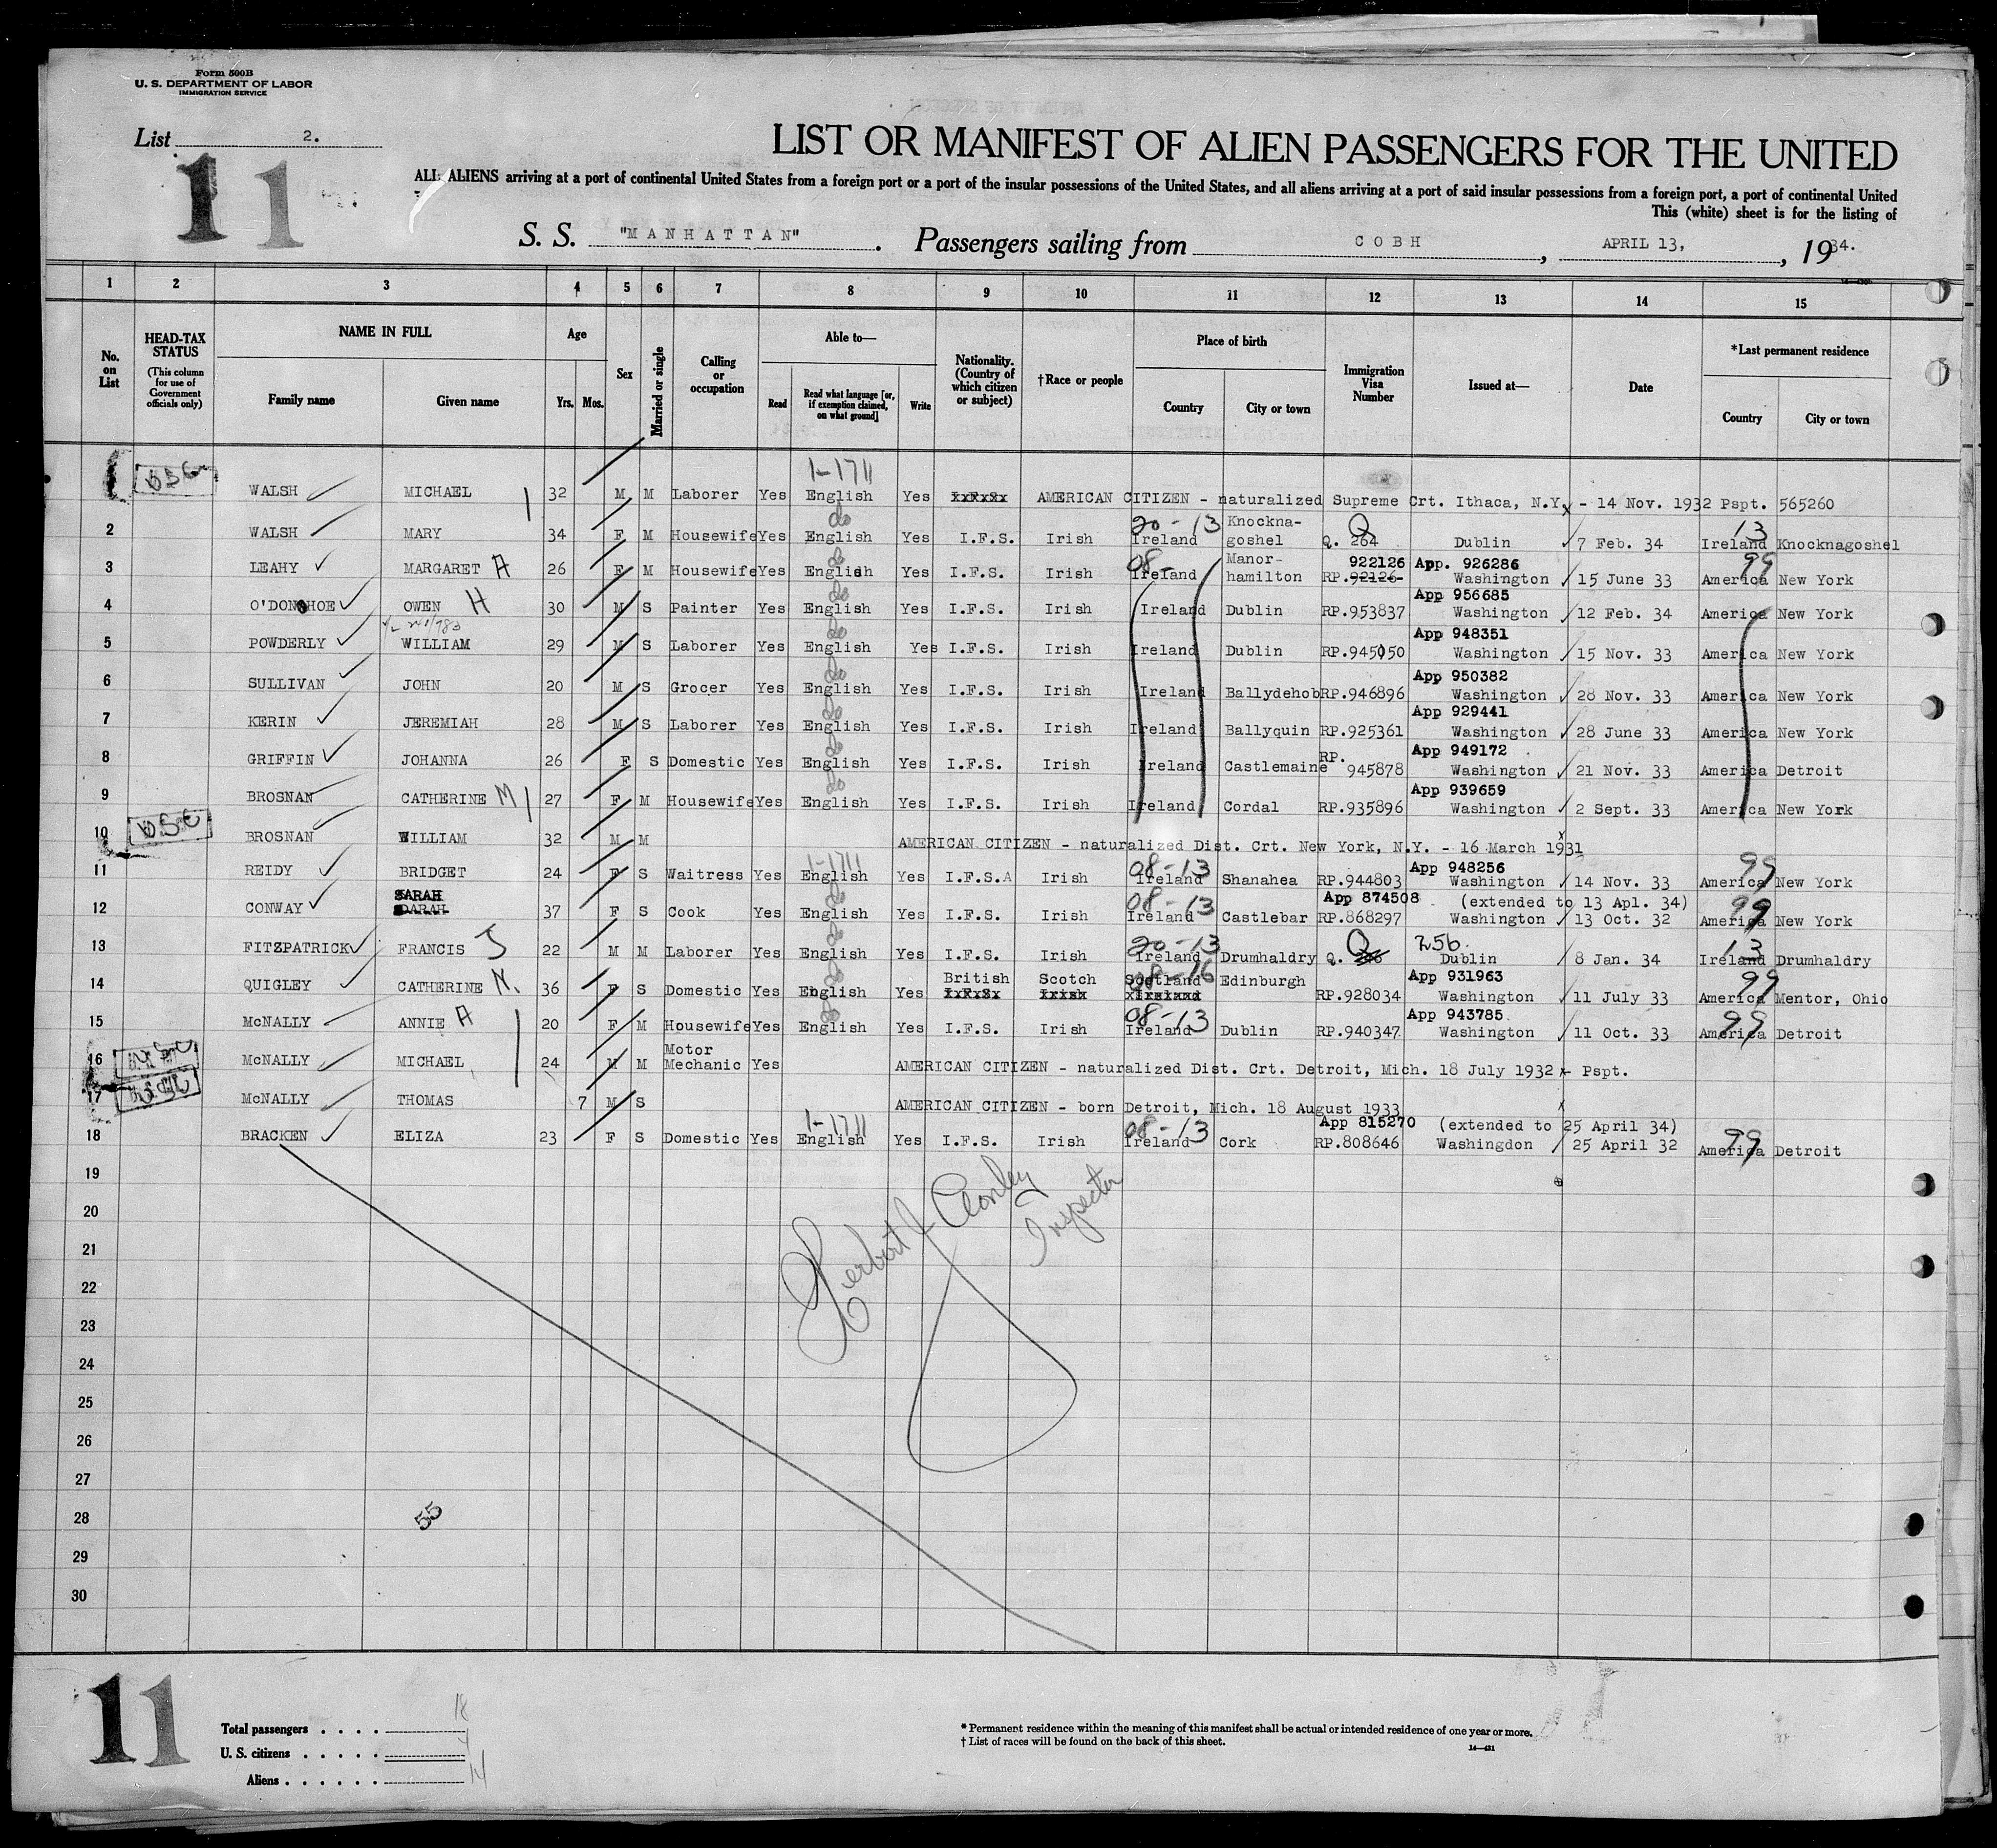 Form 500B
U. S. DEPARTMENT OF LABOR
IMMIGRATION SERVICE
List 2.
11
LIST OR MANIFEST OF ALIEN PASSENGERS FOR THE UNITED
ALL ALIENS arriving at a port of continental United States from a foreign port or a port of the insular possessions of the United States, and all aliens arriving at a port of said insular possessions from a foreign port, a port of continental United
This (white) sheet is for the listing of
S. S. "MANHATTAN". Passengers sailing from COBH, APRIL 13, 1934.
1 2 3 4 5 6 7 8 9 10 11 12 13 14 15
No. on List
HEAD-TAX STATUS (This column for use of Government officials only)
NAME IN FULL
Family name Given name
Age
Yrs. Mos.
Sex
Married or single
Calling or occupation
Able to—
Read Read what language [or, if exemption claimed, on what ground] Write
Nationality. (Country of which citizen or subject)
†Race or people
Place of birth
Country City or town
Immigration Visa Number
Issued at—
Date
*Last permanent residence
Country City or town
1-1711
WALSH MICHAEL 32 M M Laborer Yes English Yes AMERICAN CITIZEN - naturalized Supreme Crt. Ithaca, N.Y. - 14 Nov. 1932 Pspt. 565260
do 20-13 Q 13
2 WALSH MARY 34 F M Housewife Yes English Yes I.F.S. Irish Ireland Knockna-goshel Q. 264 Dublin 7 Feb. 34 Ireland Knocknagoshel
do 08- 99
3 LEAHY MARGARET A 26 F M Housewife Yes English Yes I.F.S. Irish Ireland Manor-hamilton 922126 RP.92126 App. 926286 Washington 15 June 33 America New York
4 O'DONOHOE OWEN H 30 M S Painter Yes English Yes I.F.S. Irish Ireland Dublin RP.953837 App 956685 Washington 12 Feb. 34 America New York
5 POWDERLY WILLIAM 29 M S Laborer Yes English Yes I.F.S. Irish Ireland Dublin RP.945050 App 948351 Washington 15 Nov. 33 America New York
6 SULLIVAN JOHN 20 M S Grocer Yes English Yes I.F.S. Irish Ireland Ballydehob RP.946896 App 950382 Washington 28 Nov. 33 America New York
7 KERIN JEREMIAH 28 M S Laborer Yes English Yes I.F.S. Irish Ireland Ballyquin RP.925361 App 929441 Washington 28 June 33 America New York
8 GRIFFIN JOHANNA 26 F S Domestic Yes English Yes I.F.S. Irish Ireland Castlemaine RP. 945878 App 949172 Washington 21 Nov. 33 America Detroit
9 BROSNAN CATHERINE M 27 F M Housewife Yes English Yes I.F.S. Irish Ireland Cordal RP.935896 App 939659 Washington 2 Sept. 33 America New York
10 BROSNAN WILLIAM 32 M M AMERICAN CITIZEN - naturalized Dist. Crt. New York, N.Y. - 16 March 1931
1-1711 08-13 99
11 REIDY BRIDGET 24 F S Waitress Yes English Yes I.F.S.A Irish Ireland Shanahea RP.944803 App 948256 Washington 14 Nov. 33 America New York
do 08-13 99
12 CONWAY SARAH 37 F S Cook Yes English Yes I.F.S. Irish Ireland Castlebar App 874508 RP.868297 (extended to 13 Apl. 34) Washington 13 Oct. 32 America New York
20-13 Q 256 13
13 FITZPATRICK FRANCIS J 22 M M Laborer Yes English Yes I.F.S. Irish Ireland Drumhaldry Q. Dublin 8 Jan. 34 Ireland Drumhaldry
08-16 99
14 QUIGLEY CATHERINE N. 36 F S Domestic Yes English Yes British Scotch Scotland Edinburgh RP.928034 App 931963 Washington 11 July 33 America Mentor, Ohio
08-13 99
15 McNALLY ANNIE A 20 F M Housewife Yes English Yes I.F.S. Irish Ireland Dublin RP.940347 App 943785 Washington 11 Oct. 33 America Detroit
16 McNALLY MICHAEL 24 M M Motor Mechanic Yes AMERICAN CITIZEN - naturalized Dist. Crt. Detroit, Mich. 18 July 1932 - Pspt.
17 McNALLY THOMAS 7 M S AMERICAN CITIZEN - born Detroit, Mich. 18 August 1933
1-1711 08-13 99
18 BRACKEN ELIZA 23 F S Domestic Yes English Yes I.F.S. Irish Ireland Cork App 815270 RP.808646 (extended to 25 April 34) Washingdon 25 April 32 America Detroit
19
20
21
22
23
24
25
26
27
28
29
30
Inspector
55
11
Total passengers . . . . 18
U. S. citizens . . . . . 4
Aliens . . . . . . 14
* Permanent residence within the meaning of this manifest shall be actual or intended residence of one year or more.
† List of races will be found on the back of this sheet.
14—431